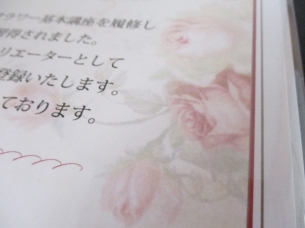 フラワー基本講座を履修し
得されました。
リエーターとして
登録いたします。
ております。